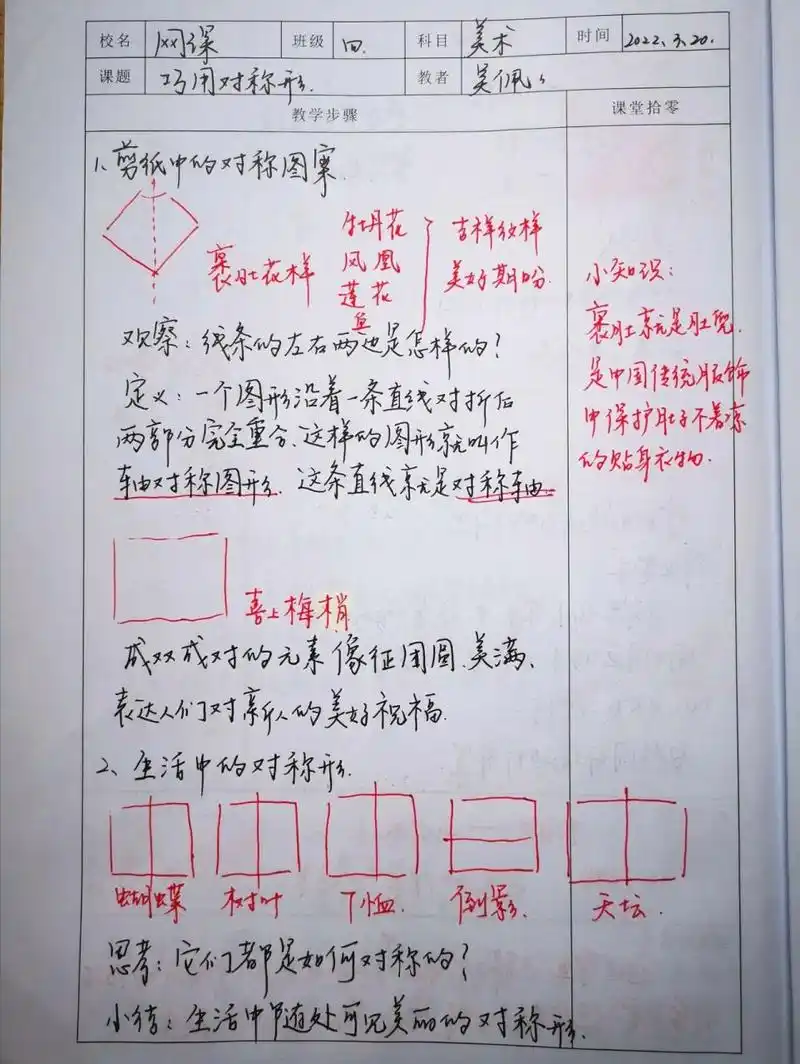 校名 网课 班级 四. 科目 美术 时间 2022.3.20.
课题 巧用对称形. 教者 吴佩
教学步骤 课堂拾零
1、剪纸中的对称图案
裹肚花样
牡丹花
凤凰
莲花
鱼
吉祥纹样
美好期盼.
观察:线条的左右两边是怎样的?
定义:一个图形沿着一条直线对折后
两部分完全重合、这样的图形就叫作
轴对称图形. 这条直线就是对称轴.
小知识:
裹肚就是肚兜.
是中国传统服饰
中保护肚子不着凉
的贴身衣物.
喜上梅梢
成双成对的元素像征团圆、美满、
表达人们对新人的美好祝福.
2、生活中的对称形.
蝴蝶 树叶 T恤. 倒影. 天坛.
思考:它们都是如何对称的?
小结:生活中随处可见美丽的对称形.